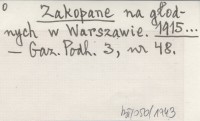 Zakopane na głod-
nych w Warszawie. 1915...
— Gaz. Podh. 3, nr 48.